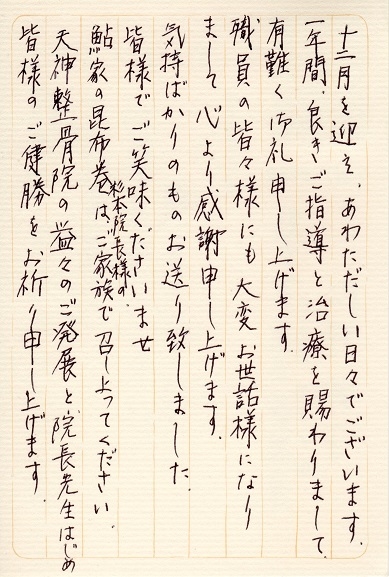 十二月を迎え、あわただしい日々でございます。
一年間、良きご指導と治療を賜わりまして、
有難く御礼申し上げます。
職員の皆々様にも大変お世話様になり
まして心より感謝申し上げます。
気持ばかりのものお送り致しました。
皆様でご笑味くださいませ
杉本院長様の
鮎家の昆布巻は、ご家族で召し上ってください。
天神整骨院の益々のご発展と院長先生はじめ
皆様のご健勝をお祈り申し上げます。